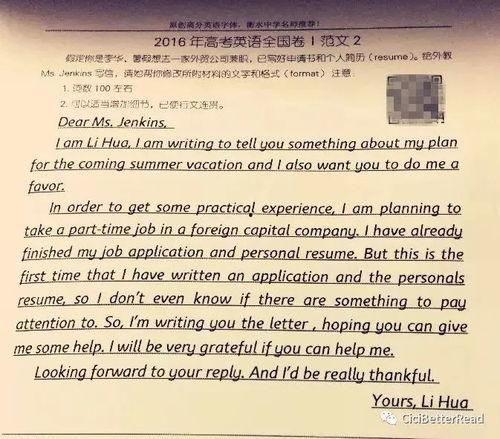 原创高分英语字体，衡水中学名师推荐！
2016年高考英语全国卷 I 范文2
假定你是李华，暑假想去一家外贸公司兼职，已写好申请书和个人简历（resume）。给外教
Ms. Jenkins 写信，请她帮你修改所附材料的文字和格式（format）注意：
1. 词数 100 左右
2. 可以适当增加细节，已使行文连贯。
Dear Ms. Jenkins,
I am Li Hua, I am writing to tell you something about my plan
for the coming summer vacation and I also want you to do me a
favor.
In order to get some practical experience, I am planning to
take a part-time job in a foreign capital company. I have already
finished my job application and personal resume. But this is the
first time that I have written an application and the personals
resume, so I don't even know if there are something to pay
attention to. So, I'm writing you the letter , hoping you can give
me some help. I will be very grateful if you can help me.
Looking forward to your reply. And I'd be really thankful.
Yours, Li Hua
CiciBetterRead